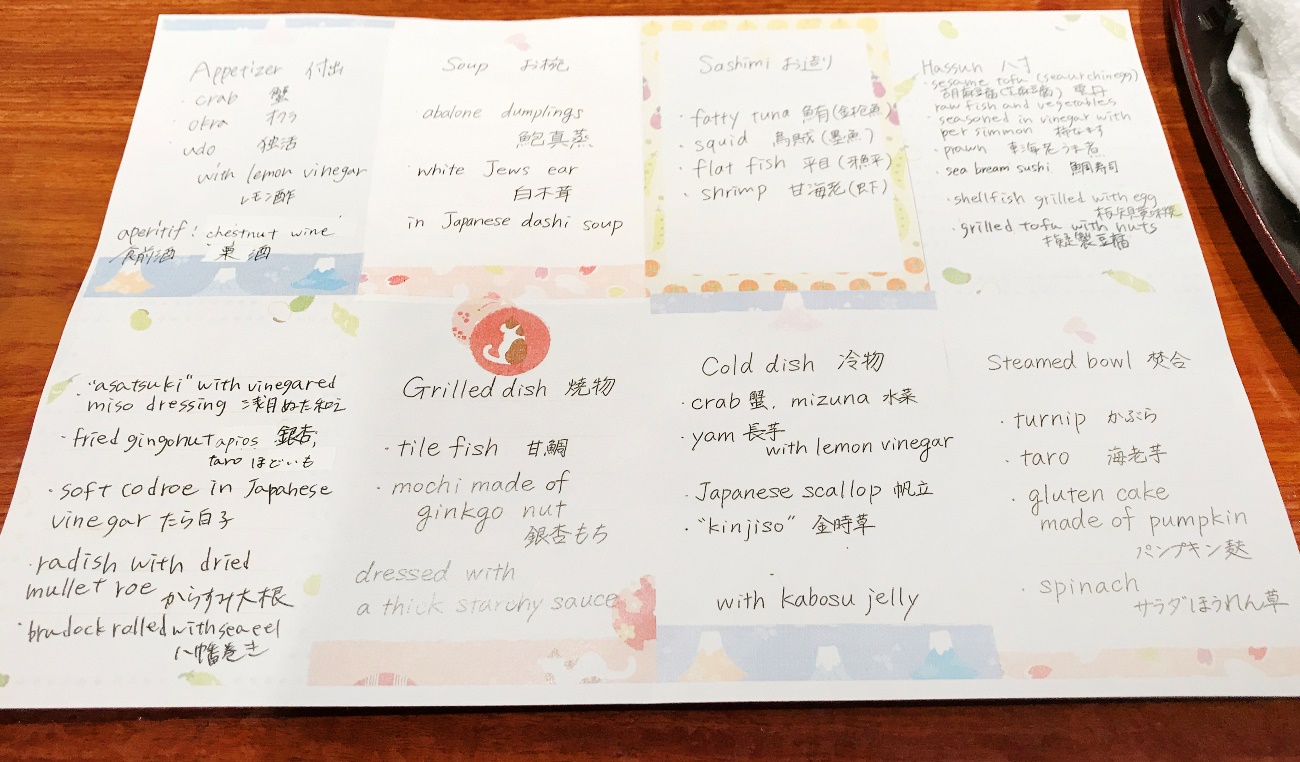 Appetizer 付出
・crab 蟹
・okra オクラ
・udo 独活
with lemon vinegar
レモン酢
aperitif : chestnut wine
食前酒 栗酒
Soup お椀
・abalone dumplings
鮑真蒸
・white Jews ear
白木茸
in Japanese dashi soup
Sashimi お造り
・fatty tuna 鮪(金枪魚)
・squid 烏賊(墨魚)
・flat fish 平目(牙鮃)
・shrimp 甘海老(虾)
Hassun 八寸
・sesame tofu (seaurchinegg)
胡麻豆腐 雲丹
raw fish and vegetables
・seasoned in vinegar with
persimmon 柿なます
・prawn 車海老うま煮
・sea bream sushi 鯛寿司
・shellfish grilled with egg
・grilled tofu with nuts
擬製豆腐
・"asatsuki" with vinegared
miso dressing 浅月ぬた和え
・fried gingonut apios 銀杏,
taro ほどいも
・soft codroe in Japanese
vinegar たら白子
・radish with dried
mullet roe からすみ大根
・brudock rolled with sea eel
八幡巻き
Grilled dish 焼物
・tile fish 甘鯛
・mochi made of
ginkgo nut
銀杏もち
dressed with
a thick starchy sauce
Cold dish 冷物
・crab 蟹, mizuna 水菜
・yam 長芋
with lemon vinegar
・Japanese scallop 帆立
・"kinjiso" 金時草
with kabosu jelly
Steamed bowl 焚合
・turnip かぶら
・taro 海老芋
・gluten cake
made of pumpkin
パンプキン麩
・spinach
サラダほうれん草